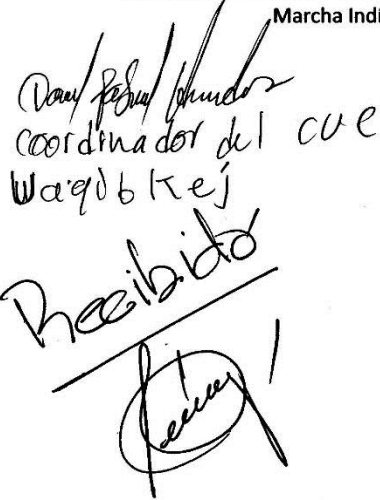 Marcha Indí
coordinador del cue
Waqib Kej
Recibido